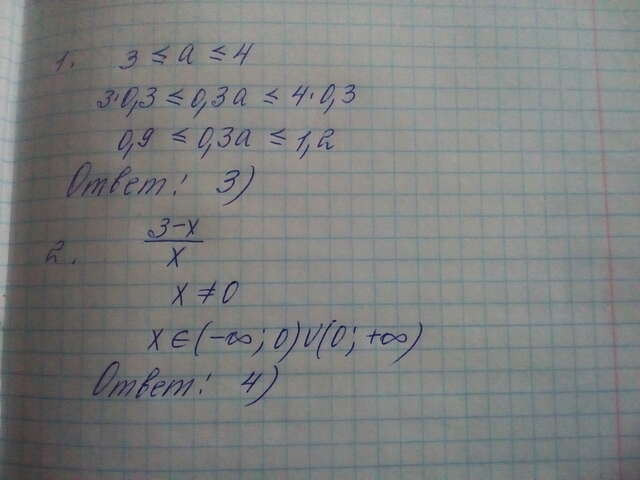 1. 3 ≤ a ≤ 4
3·0,3 ≤ 0,3a ≤ 4·0,3
0,9 ≤ 0,3a ≤ 1,2
Ответ: 3)
2. 3-x/x
x ≠ 0
x ∈ (-∞; 0) ∪ (0; +∞)
Ответ: 4)